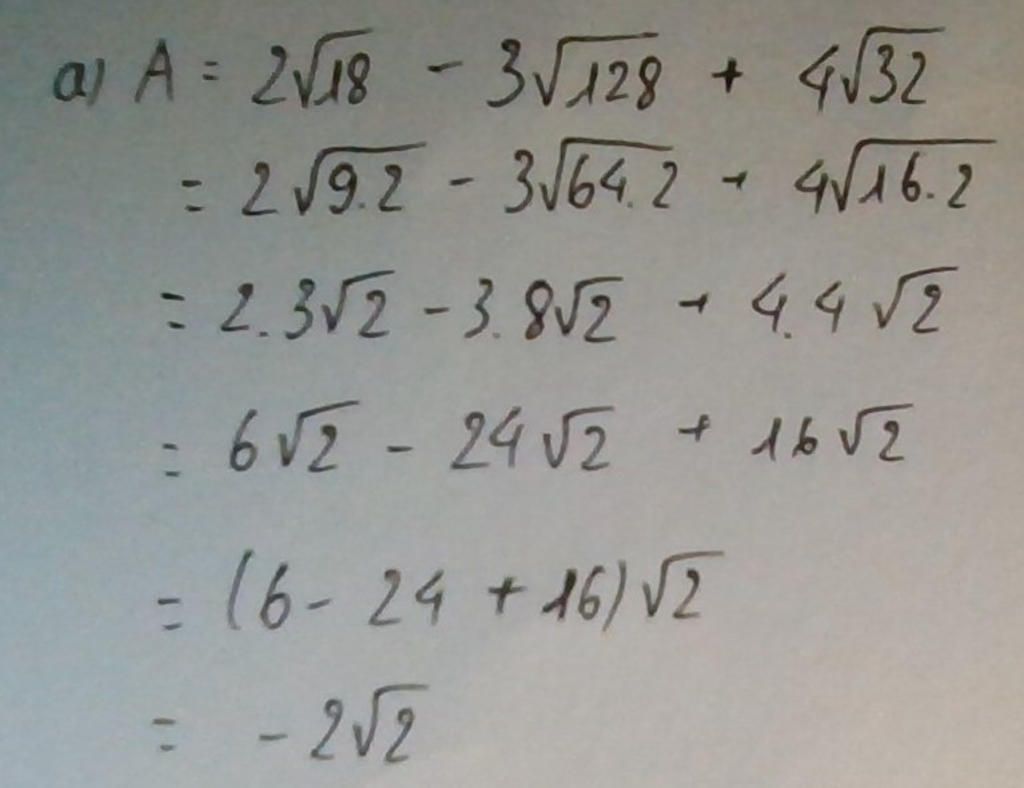 a) A = 2√18 - 3√128 + 4√32
= 2√9.2 - 3√64.2 + 4√16.2
= 2.3√2 - 3.8√2 + 4.4√2
= 6√2 - 24√2 + 16√2
= (6 - 24 + 16)√2
= - 2√2